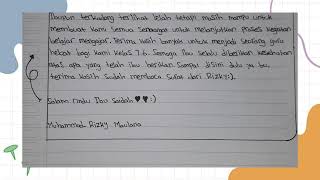 Meskipun terkadang terlihat lelah tetapi masih mampu untuk
membuat kami semua semangat untuk melanjutkan proses kegiatan
belajar mengajar. Terima kasih banyak untuk menjadi seorang guru
hebat bagi kami kelas 7.6. Semoga Ibu selalu diberikan kesehatan
atas apa yang telah ibu berikan. Sampai disini dulu ya bu,
terima kasih sudah membaca surat dari Rizky:).
Salam rindu Ibu Saidah ♥♥:)
Muhammad Rizky Maulana